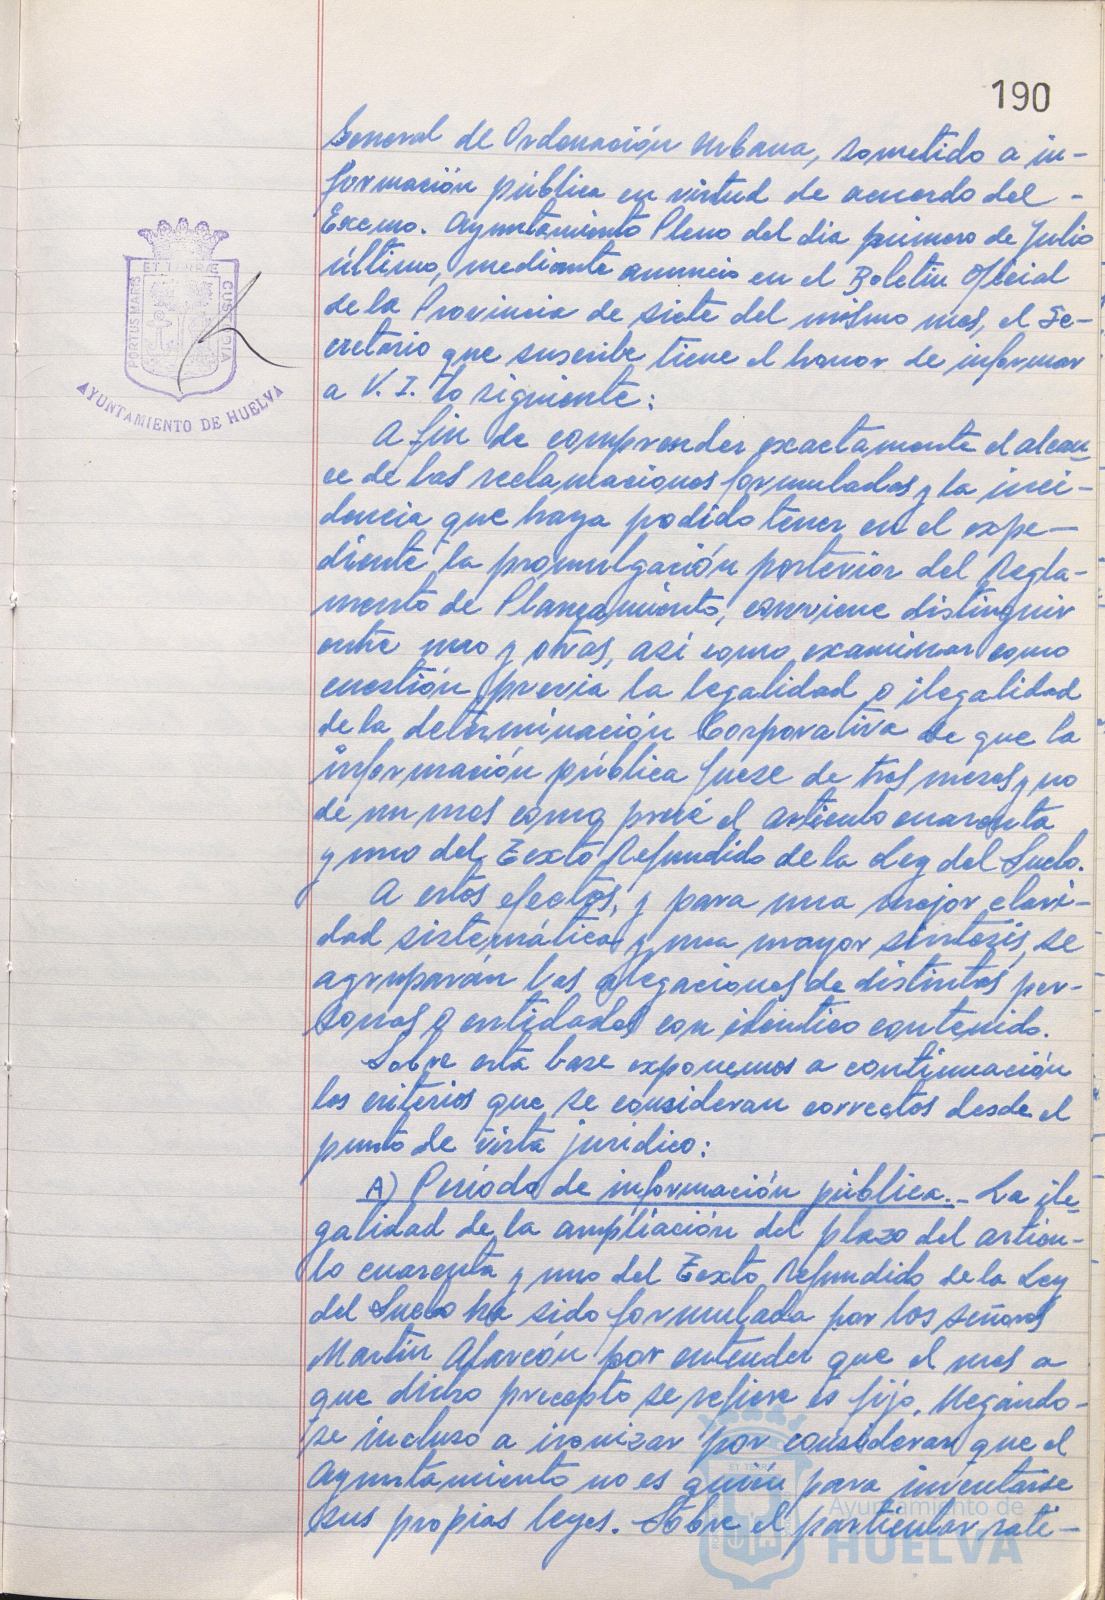 190
General de Ordenación Urbana, sometido a in-
formación pública en virtud de acuerdo del -
Excmo. Ayuntamiento Pleno del dia primero de Julio
último, mediante anuncio en el Boletin Oficial
de la Provincia de siete del mismo mes, el Se-
cretario que suscribe tiene el honor de informar
a V. I. lo siguiente:
A fin de comprender exactamente el alcan-
ce de las reclamaciones formuladas y la inci-
dencia que haya podido tener en el expe-
diente la promulgación posterior del Regla-
mento de Planeamiento, conviene distinguir
entre uno y otras, asi como examinar como
cuestión previa la legalidad o ilegalidad
de la determinación Corporativa de que la
información pública fuese de tres meses y no
de un mes como prevé el articulo cuarenta
y uno del Texto Refundido de la Ley del Suelo.
A estos efectos, y para una mejor clari-
dad sistemática y una mayor sintesis, se
agruparán las alegaciones de distintas per-
sonas o entidades con idéntico contenido.
Sobre esta base exponemos a continuación
los criterios que se consideran correctos desde el
punto de vista juridico:
A) Periodo de información pública.- La ile-
galidad de la ampliación del plazo del articu-
lo cuarenta y uno del Texto Refundido de la Ley
del Suelo ha sido formulada por los señores
Martín Alarcón por entender que el mes a
que dicho precepto se refiere es fijo, llegando-
se incluso a ironizar por considerar que el
Ayuntamiento no es quien para inventarse
sus propias leyes. Sobre el particular rati-
ET TERRÆ
PORTUS MARIS
CUSTODIA
AYUNTAMIENTO DE HUELVA
Ayuntamiento de
HUELVA